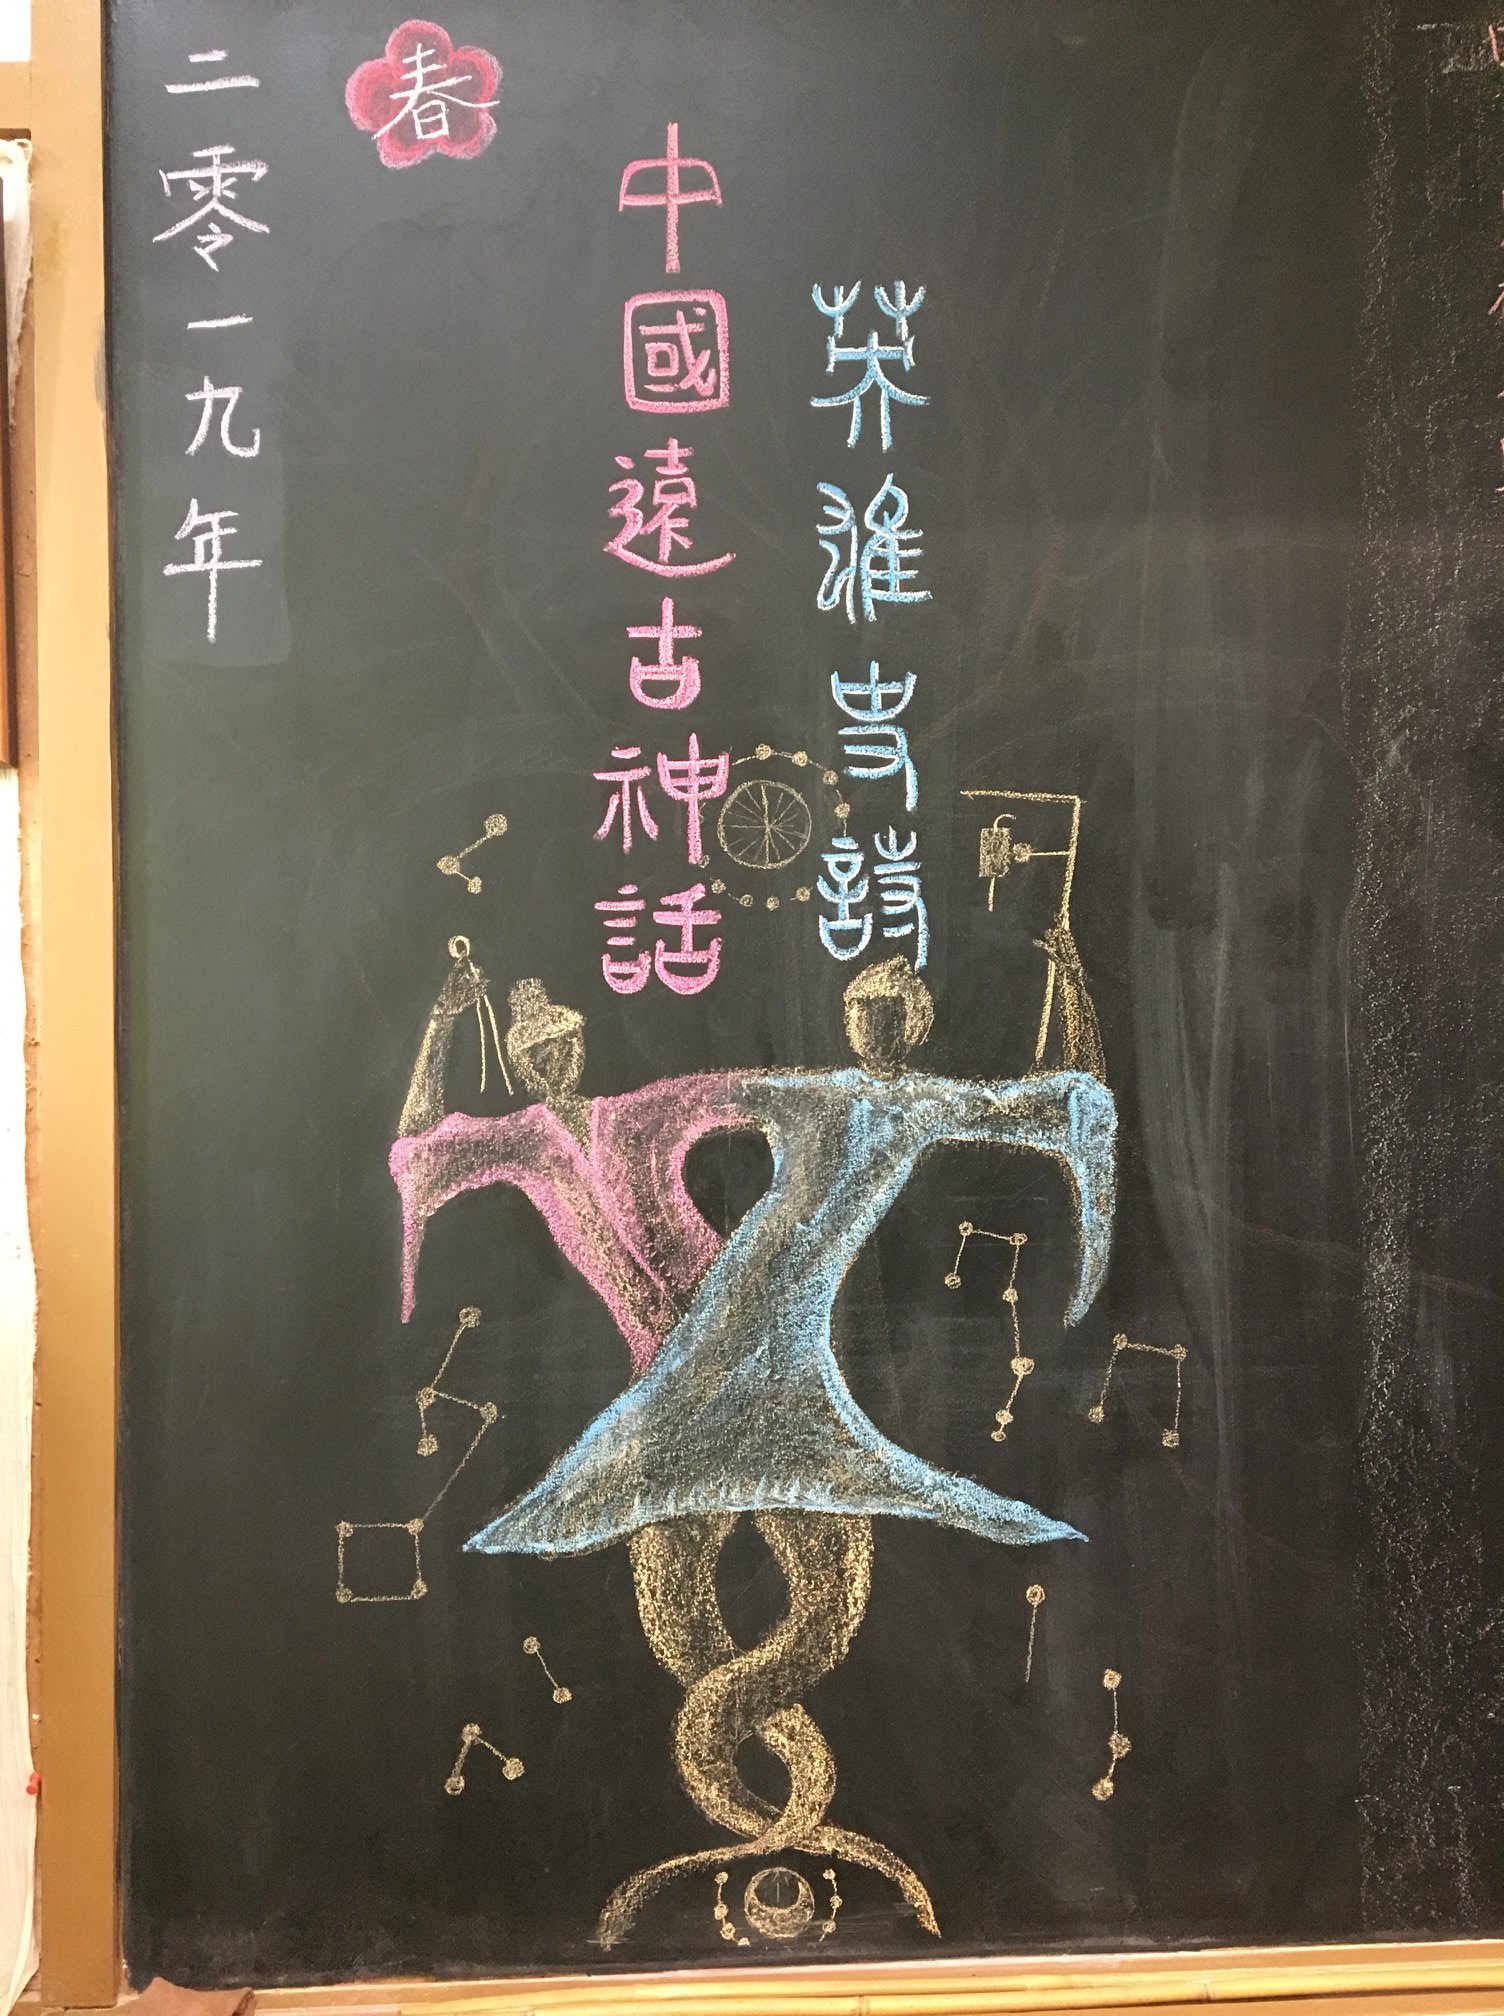 英雄史詩
中國遠古神話
春
二零一九年